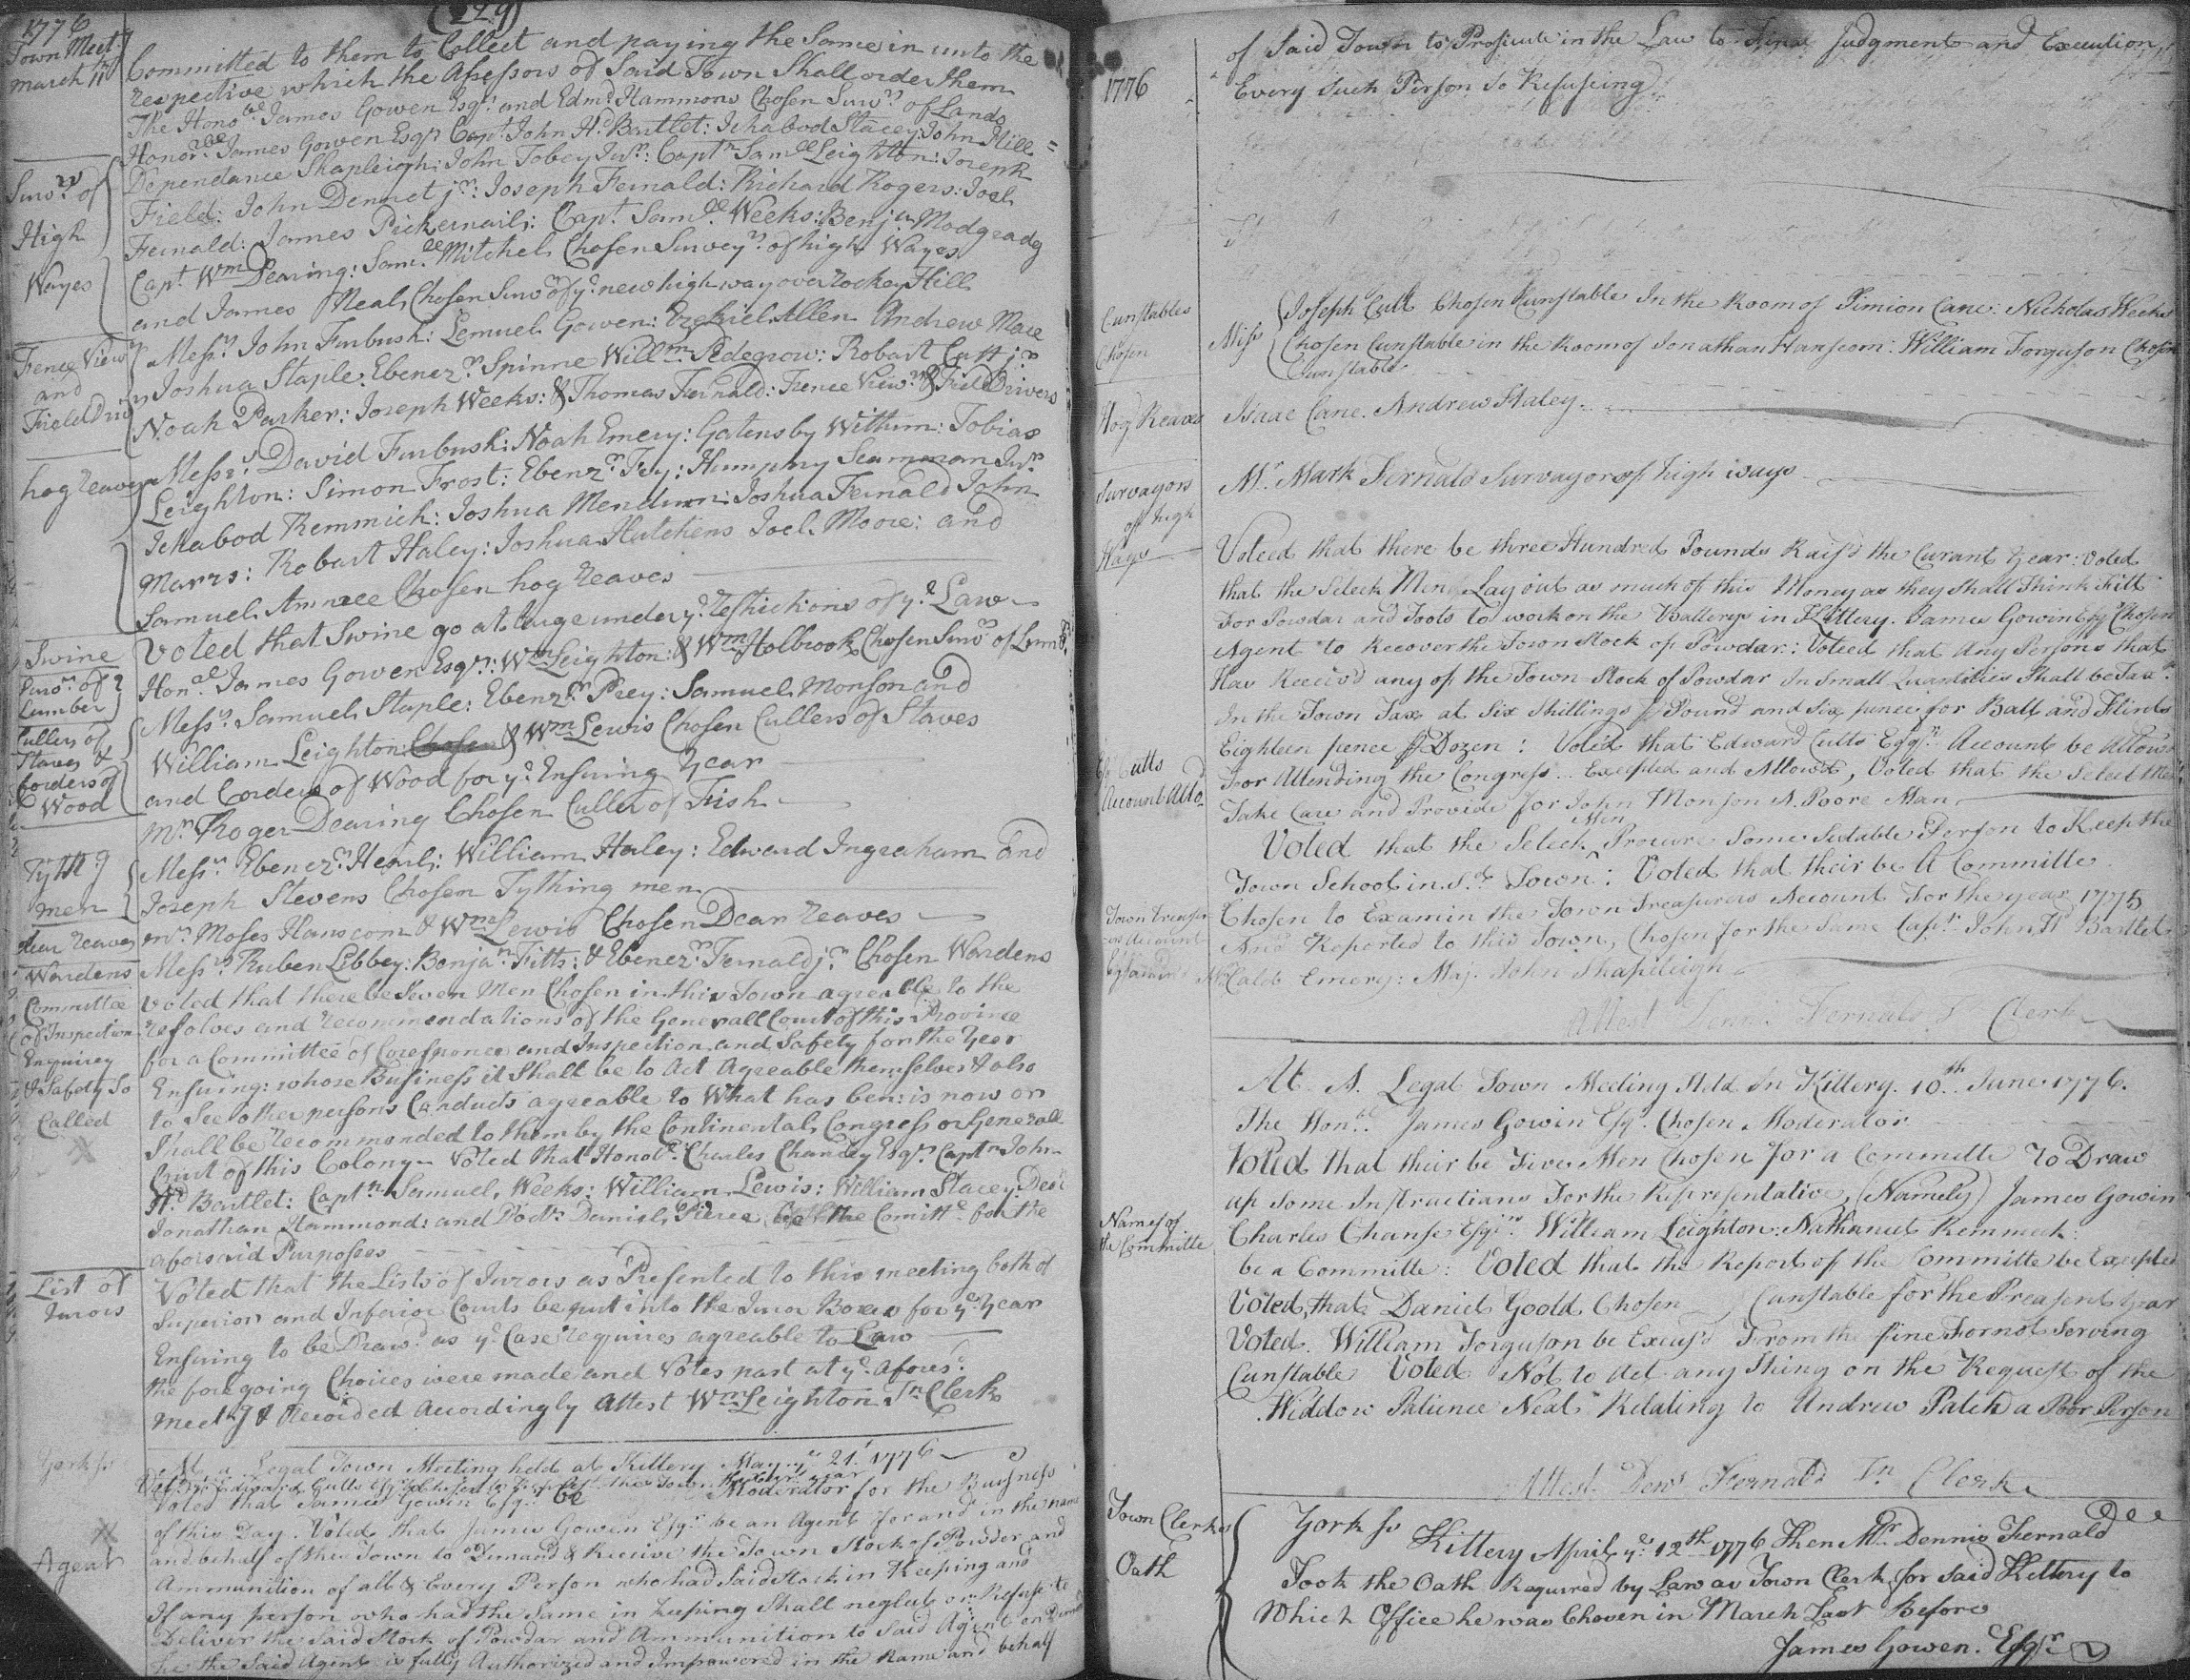 (229)
1776
Town Meet.g
March 11th
Committed to them to Collect and paying the Same in unto the
respective which the Assessors of Said Town Shall order them
The Honobe James Gowen Esqr and Edmd Hammons Chosen Survrs of Lands
Survrs of
High
Wayes
Honorbe James Gowen Esqr Capt John Hd Bartlet: Ichabod Stacey: John Hill =
Dependance Shapleigh: John Tobey Junr: Captn Samll Leighton: Joseph
Field: John Dennet jr: Joseph Fernald: Richard Rogers: Joel
Fernald: James Pickernail: Capt Samll Weeks: Benja
Capt Wm Dearing: Samll Mitchel Chosen Surveyrs of high Wayes
and James Neal Chosen Survr of ye new high way over rockey Hill
Fence View
and
Field Driv
Messrs John Furbush: Lemuel Gowen: Ezekiel Allen Andrew Mace
Joshua Staple: Ebenezr Spinne Willm Pedegrow: Robart Cutt jr
Noah Parker: Joseph Weeks: & Thomas Fernald: Fence Viewrs & Field Drivers
hog reaves
Messrs David Furbush: Noah Emery: Gatensby Withum: Tobias
Leighton: Simon Frost: Ebenzr Fry: Humphry Scammon Junr
Ichabod Remmick: Joshua Mendum: Joshua Fernald John
Marrs: Robart Haley: Joshua Hutchens Joel Moore: and
Samuel Ammee Chosen hog reaves
Swine
Voted that Swine go at large under ye restrictions of ye Law
Survrs of
Lumber
Honbl James Gowen Esqr: Wm Leighton: & Wm Holbrook Chosen Survrs of Lumbr
Cullers of
Staves &
Corders of
Wood
Messrs Samuel Staple: Ebenzr Prey: Samuel Monson and
William Leighton: Chosen & Wm Lewis Chosen Cullers of Staves
and Corders of Wood for ye Ensuing Year
Mr Roger Dearing Chosen Culler of Fish
Tythg
men
Messrs Ebenezr Hearl: William Haley: Edward Ingraham and
Joseph Stevens Chosen Tything men
dear reaves
mrs Moses Hanscom & Wm Lewis Chosen Dear reaves
Wardens
Messrs Ruben Libbey: Benjan Fitts: & Ebenezr Fernald jr Chosen Wardens
Committee
of Inspection
Enquirey
& Safety So
Called
voted that there be Seven Men Chosen in this Town agreable to the
resolves and recommendations of the Generall Court of this Province
for a Committee of Coresponce and Inspection and Safety for the Year
Ensuing: whose Business it Shall be to Act Agreable themselves & also
to See other persons Conducts agreable to What has ben: is now or
Shall be recommended to them by the Continental Congress or Generall
Court of this Colony Voted that Honobe Charles Chancey Esqr Captn John
Hd Bartlet: Captn Samuel Weeks: William Lewis: William Stacey: Deac
Jonathan Hammond: and Doctr Daniel Pierce be the Comitte for the
aforesaid Purposses
List of
Jurors
Voted that the Lists of Jurors as Presented to this meeting both of
Superior and Inferior Courts be put into the Juror Boxes for ye Year
Ensuing to be Drawd as ye Case requires agreable to Law
the foregoing Choices were made and Votes past at ye aforesd
meetg & Recorded Accordingly Attest Wm Leighton Tn Clerk
York ss
At a Legal Town Meeting held at Kittery May ye 21t 1776
Voted that James Gowen Esqr be Moderator for the Buisness
Agent
of this Day. Voted that James Gowen Esqr be an Agent for and in the name
and behalf of this Town to Demand & Receive the Town Stock of Powder and
Ammunition of all & Every Person who had Said Stock in Keeping and
If any person who had the Same in keeping Shall neglect or Refuse to
Deliver the Said Stock of Powdar and Ammunition to Said Agent on Demand
he the Said Agent is fully Authorized and Impowered in the Name and behalf
1776
of Said Town to Prosicute in the Law to Final Judgment and Execution
Every Such Person So Refuseing
Cunstables
Chosen
Miss Joseph Cutt Chosen Cunstable In the Room of Simion Cane: Nicholas Weeks
Chosen Cunstable in the Room of Jonathan Hanscom: William Forguson Chosen
Cunstable
Hog Reaves
Isaac Cane. Andrew Haley.
Survayors
of high
Ways
Mr Mark Fernald Survayor of high ways
Voteed that there be three Hundred Pounds Raisd the Curant Year: Voted
that the Select Men Lay out as much of this Money as they Shall Think Fitt
For Powdar and Tools to work on the Batterys in Kittery. James Gowin Esqr Chosen
Agent to Recover the Town Stock of Powdar: Voteed that Any Persons that
Hav Receivd any of the Town Stock of Powdar In Small Quantities Shall be Taxt
In the Town Tax at Six Shillings Pr Pound and Six pence for Ball and Flints
Eighteen pence Pr Dozen: Voted that Edward Cutts Esqr Account be Allowd
Cutts
Account Allod
For Attending the Congress... Excepted and Allowd, Voted that the Select Men
Take Care and Provide for John Monson A Poore Man
Voted that the Select Men Procure Some Sutable Person to Keep the
Town School in Sd Town: Voted that their be A Committe
Town Treasur
Account
Chosen to Examin the Town Treasurers Account For the year 1775
And Reported to this Town, Chosen for the Same Capt John Hd Bartlet
Mr Caleb Emery: Maj. John Shapleigh
Attest Denn. Fernald T Clerk
At A Legal Town Meeting Held In Kittery. 10th June 1776.
The Honbl James Gowin Esqr Chosen Moderator
Voted that their be Five Men Chosen for a Committe To Draw
up Some Instructians For the Representative, (Namely) James Gowin
Names of
the Committe
Charles Chanse Esqrs William Leighton: Nathaniel Remmeck:
be a Committe: Voted that the Report of the Committe be Excepted
Voted, that Daniel Goold Chosen Cunstable for the Preasent year
Voted. William Forguson be Excusd From the fine For not Serving
Cunstable Voted Not to Act any Thing on the Request of the
Widdow Patience Neal Relating to Andrew Patch a Poor Person
Attest Denn Fernald Tn Clerk
Town Clerks
Oath
York ss
Kittery April ye 12th 1776 Then Mr Dennis Fernald
Took the Oath Required by Law as Town Clerk for Said Kittery to
Which Office he was Chosen in March Last Before
James Gowen. Esqr